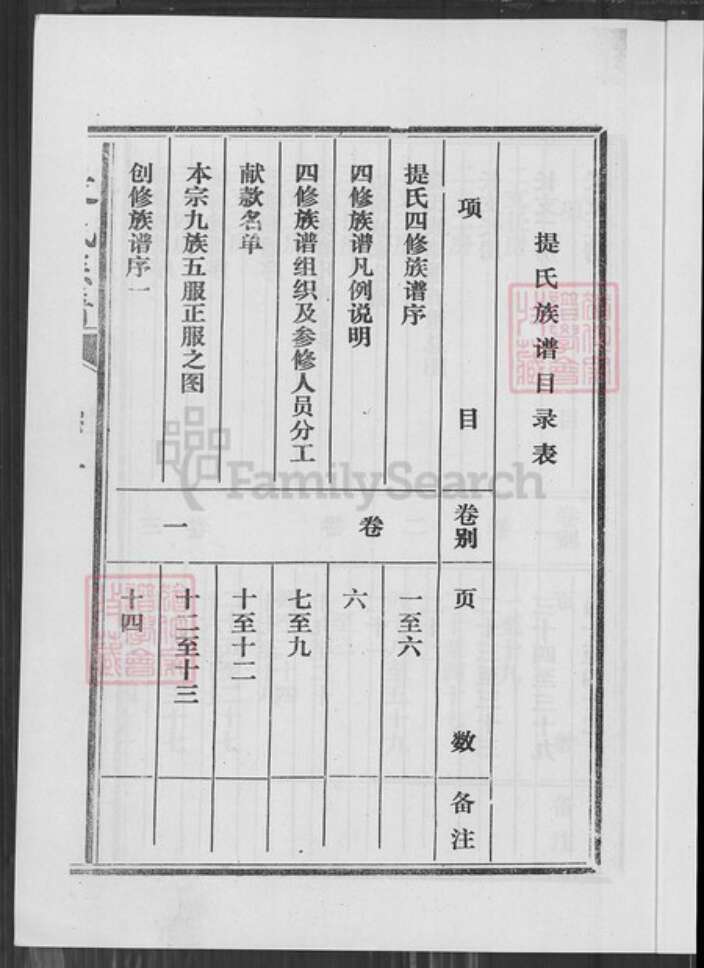 提氏族谱目录表
项目 卷别 页数 备注
提氏四修族谱序 一至六
四修族谱凡例说明 六
四修族谱组织及参修人员分工 七至九
献款名单 十至十二
本宗九族五服正服之图 十二至十三
创修族谱序一 十四
卷一
FamilySearch